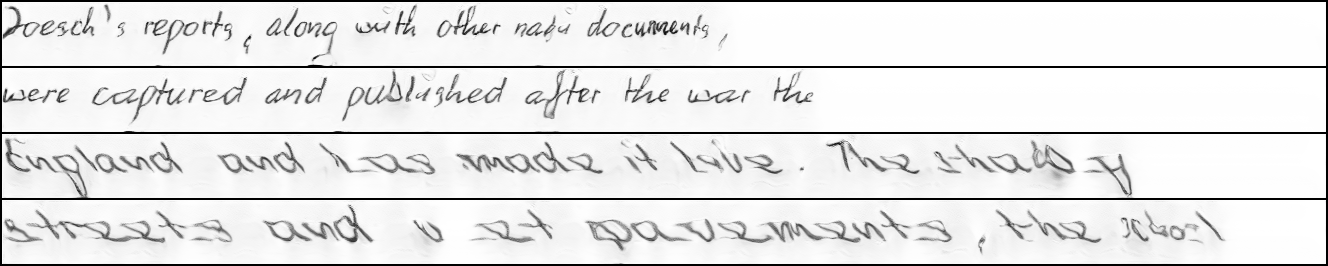 Joesch's reports, along with other nazi documents,
were captured and published after the war the
England and has made it live. The shabby
streets and wet pavements, the school